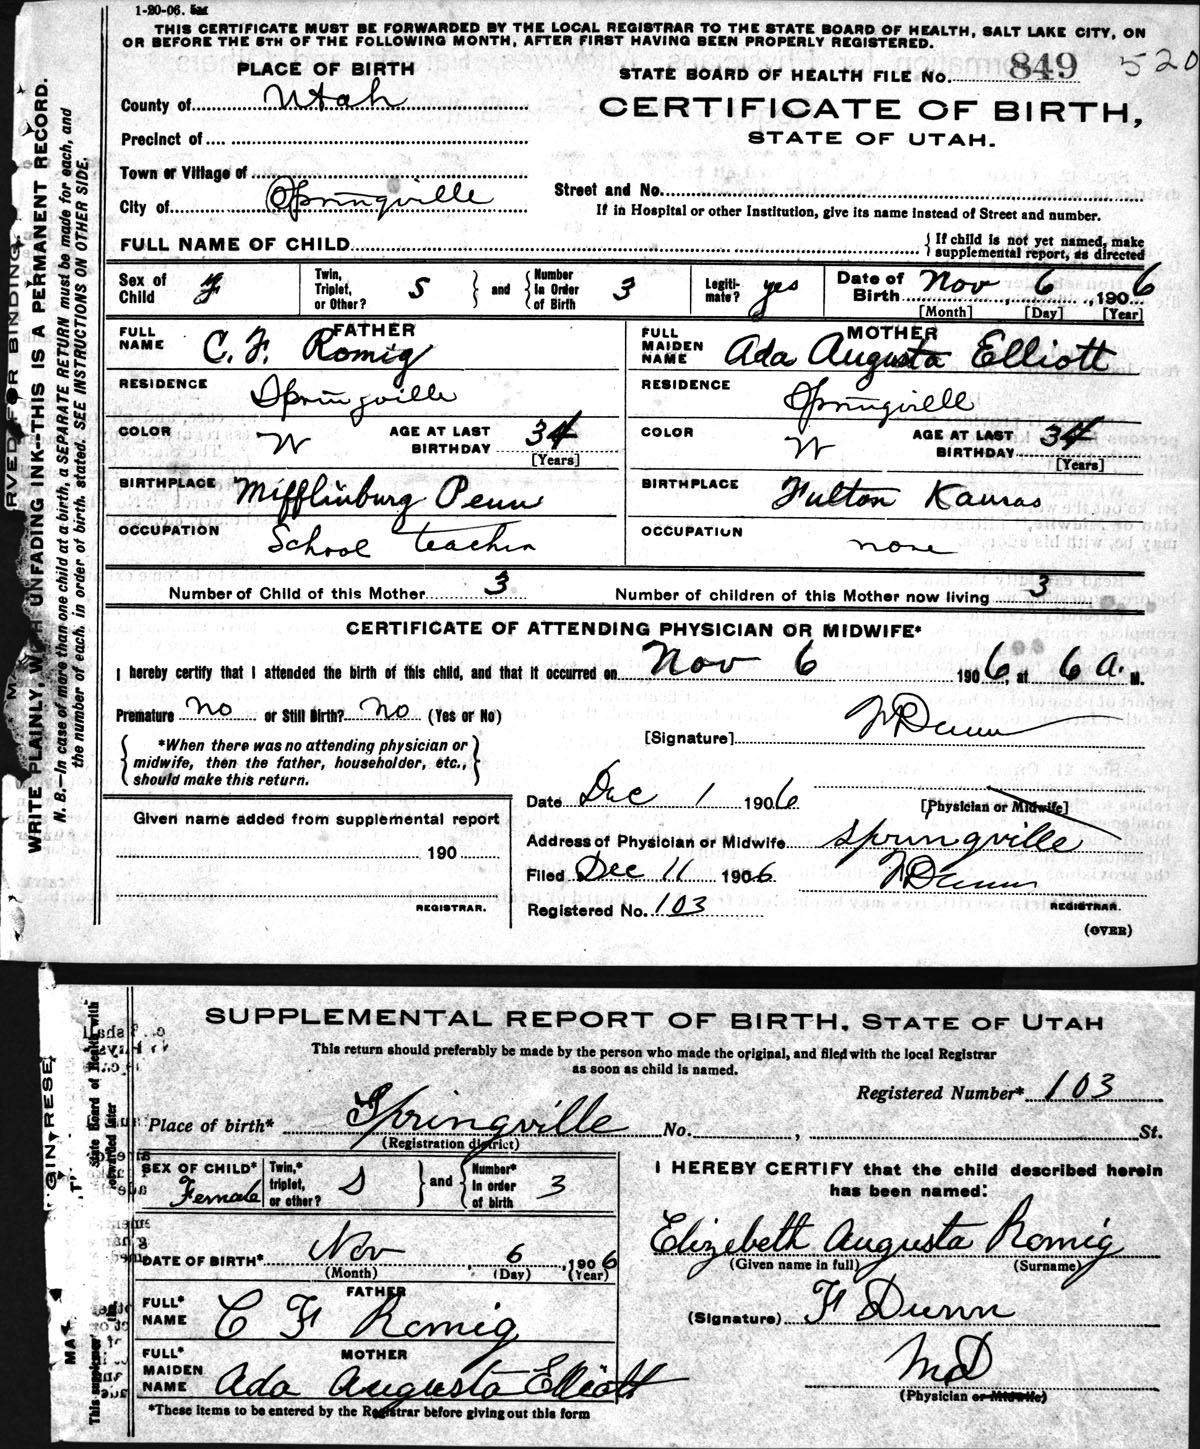 1-20-06. 5M
THIS CERTIFICATE MUST BE FORWARDED BY THE LOCAL REGISTRAR TO THE STATE BOARD OF HEALTH, SALT LAKE CITY, ON
OR BEFORE THE 5TH OF THE FOLLOWING MONTH, AFTER FIRST HAVING BEEN PROPERLY REGISTERED.
PLACE OF BIRTH
STATE BOARD OF HEALTH FILE No. 849 520
County of Utah
CERTIFICATE OF BIRTH,
Precinct of
STATE OF UTAH.
Town or Village of
Street and No.
City of Springville
If in Hospital or other Institution, give its name instead of Street and number.
FULL NAME OF CHILD { If child is not yet named, make
supplemental report, as directed
Sex of Child F Twin, Triplet, or Other? S } and { Number In Order of Birth 3 Legiti-mate? yes Date of Birth Nov 6, 1906
[Month] [Day] [Year]
FATHER MOTHER
FULL NAME C. F. Romig FULL MAIDEN NAME Ada Augusta Elliott
RESIDENCE Springville RESIDENCE Springville
COLOR W AGE AT LAST BIRTHDAY 34 [Years] COLOR W AGE AT LAST BIRTHDAY 34 [Years]
BIRTHPLACE Mifflinburg Penn BIRTHPLACE Fulton Kansas
OCCUPATION School teacher OCCUPATION none
Number of Child of this Mother 3 Number of children of this Mother now living 3
CERTIFICATE OF ATTENDING PHYSICIAN OR MIDWIFE*
I hereby certify that I attended the birth of this child, and that it occurred on Nov 6 1906, at 6 a. M.
Premature no or Still Birth? no (Yes or No)
[Signature] F Dunn
{ *When there was no attending physician or
midwife, then the father, householder, etc.,
should make this return. }
Date Dec 1 1906 [Physician or Midwife]
Given name added from supplemental report
Address of Physician or Midwife Springville
190
Filed Dec 11 1906 F Dunn
REGISTRAR.
Registered No. 103 REGISTRAR.
(OVER)
RVED FOR BINDING.
WRITE PLAINLY, WITH UNFADING INK--THIS IS A PERMANENT RECORD.
N. B.—In case of more than one child at a birth, a SEPARATE RETURN must be made for each, and
the number of each, in order of birth, stated. SEE INSTRUCTIONS ON OTHER SIDE.
SUPPLEMENTAL REPORT OF BIRTH, STATE OF UTAH
This return should preferably be made by the person who made the original, and filed with the local Registrar
as soon as child is named.
Registered Number* 103
Place of birth* Springville No. , St.
(Registration district)
SEX OF CHILD* Female Twin,* triplet, or other? S } and { Number* In order of birth 3
I HEREBY CERTIFY that the child described herein
has been named:
DATE OF BIRTH* Nov 6, 1906
(Month) (Day) (Year)
Elizebeth Augusta Romig
(Given name in full) (Surname)
FATHER
FULL* NAME C F Romig
(Signature) F Dunn
MOTHER
FULL* MAIDEN NAME Ada Augusta Elliott
MD
(Physician or Midwife)
*These items to be entered by the Registrar before giving out this form